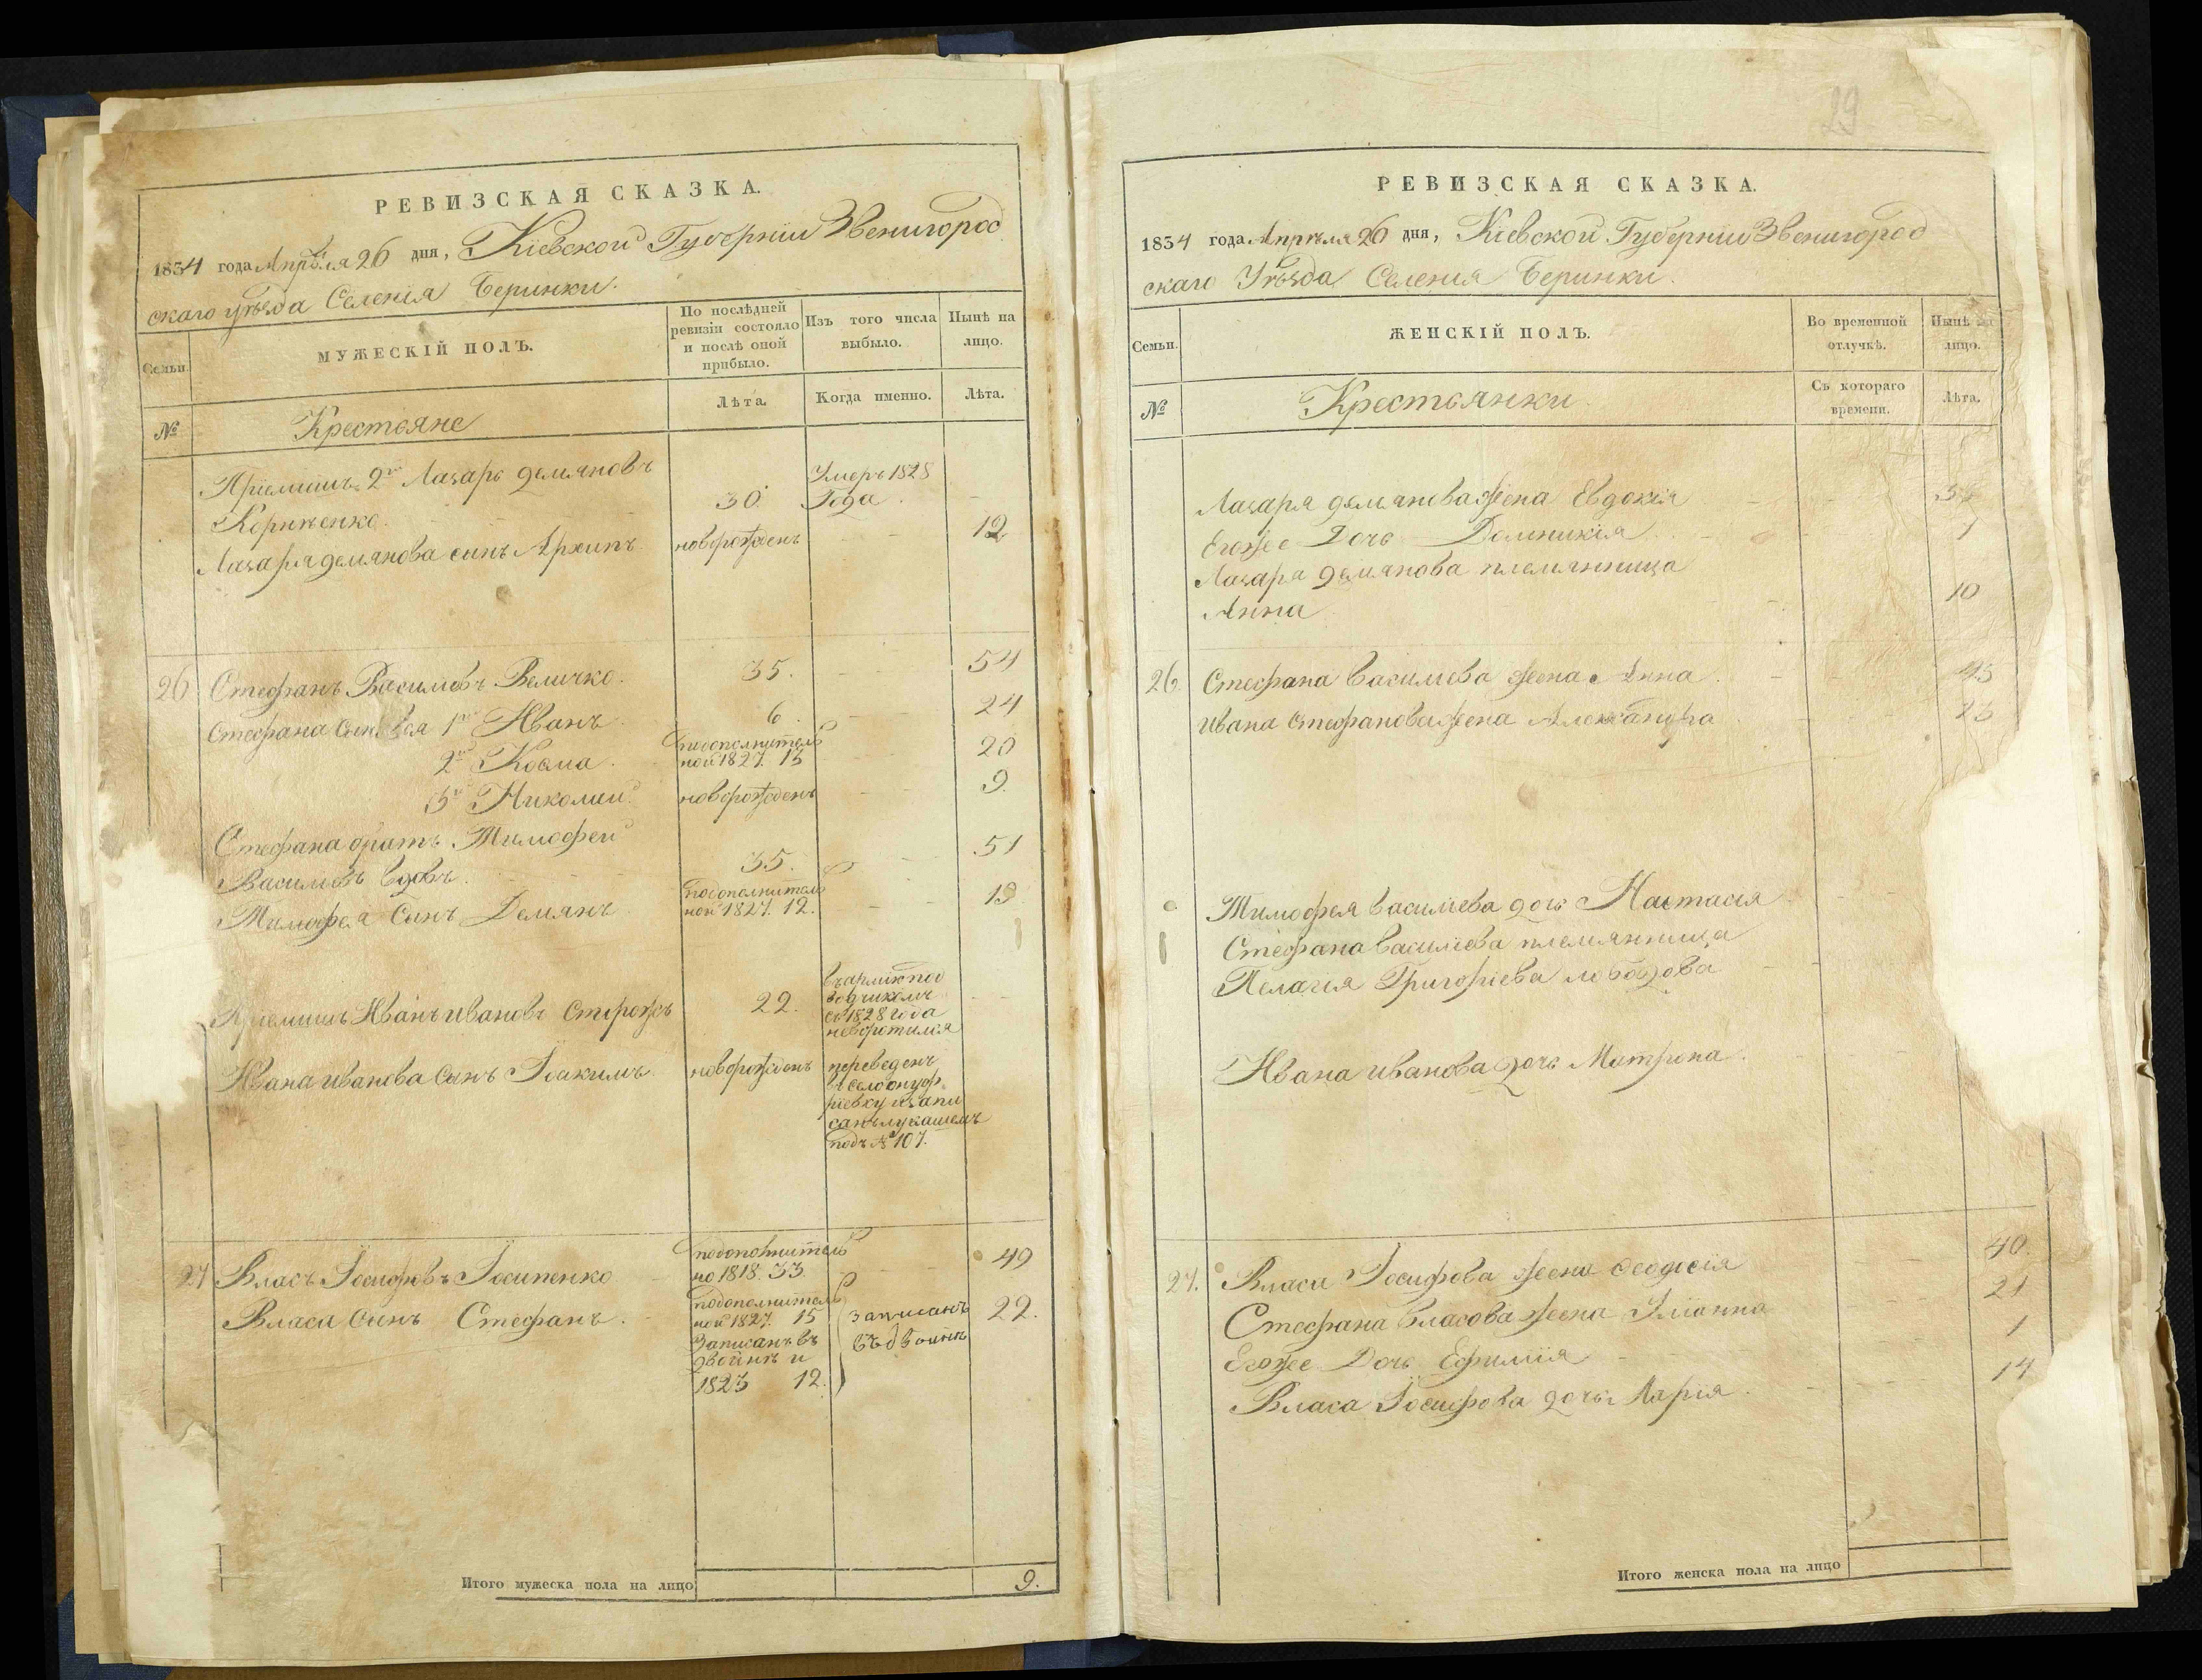 РЕВИЗСКАЯ СКАЗКА.
1834 года Апрѣля 26 дня, Кіевской Губерніи Звенигород
скаго уѣзда Селенія Беринки.
Семьи.
МУЖЕСКІЙ ПОЛЪ.
По послѣдней ревизіи состояло и послѣ оной прибыло.
Изъ того числа выбыло.
Нынѣ на лицо.
№
Крестьяне
Лѣта.
Когда именно.
Лѣта.
Пріемышъ 2й Лазарь демяновъ
Умеръ 1828
30. Года. -
Лазаря демянова сынъ Архипъ новорожденъ 12
26 Стефанъ Василіевъ Величко. 35. 54
Стефана Сыновья 1й Иванъ. 6. 24
2й Косма. подополнитель
ной 1827. 13 20
3й Николай. новорожденъ 9.
Стефана братъ Тимофей
Василіевъ вдовъ. 35. 51
Тимофея Сынъ Демянъ подополнитель
ной 1827. 12. 19
Пріемышъ Иванъ ивановъ Сторожъ 22.
въ армію под
водчикомъ
съ 1828 года
невозвратился
Ивана иванова Сынъ Іоакимъ. новорожденъ
переведенъ
в село онуф
ріевку и запи
санъ лукашемъ
подъ № 107.
27 Власъ Іосифовъ Іосипенко подополнитель
но 1818. 33. 49
Власа Сынъ Стефанъ. подополнитель
ной 1827. 15
Записанъ въ
двойнѣ и
1823 12.
записанъ
въ двойнѣ
22.
Итого мужеска пола на лицо 9.
29
РЕВИЗСКАЯ СКАЗКА.
1834 года Апрѣля 26 дня, Кіевской Губерніи Звенигород
скаго Уѣзда Селенія Беринки.
Семьи.
ЖЕНСКІЙ ПОЛЪ.
Во временной отлучкѣ.
Нынѣ на лицо.
№
Крестьянки
Съ котораго времени.
Лѣта.
Лазаря демянова жена Евдокія
Егоже Дочь Домникія 1
Лазаря демянова племянница
Анна 10
26. Стефана Василіева жена Анна. 45
Ивана Стефанова жена Александра
Тимофея Василіева дочь Настасія
Стефана Василіева племянница
Пелагія Григоріева лободова
Ивана иванова дочь Матрона.
27. Власа Іосифова жена Феодосія 40.
Стефана Власова жена Уліанна 21
Егоже Дочь Ефимія 1
Власа Іосифова дочь Марія. 14
Итого женска пола на лицо